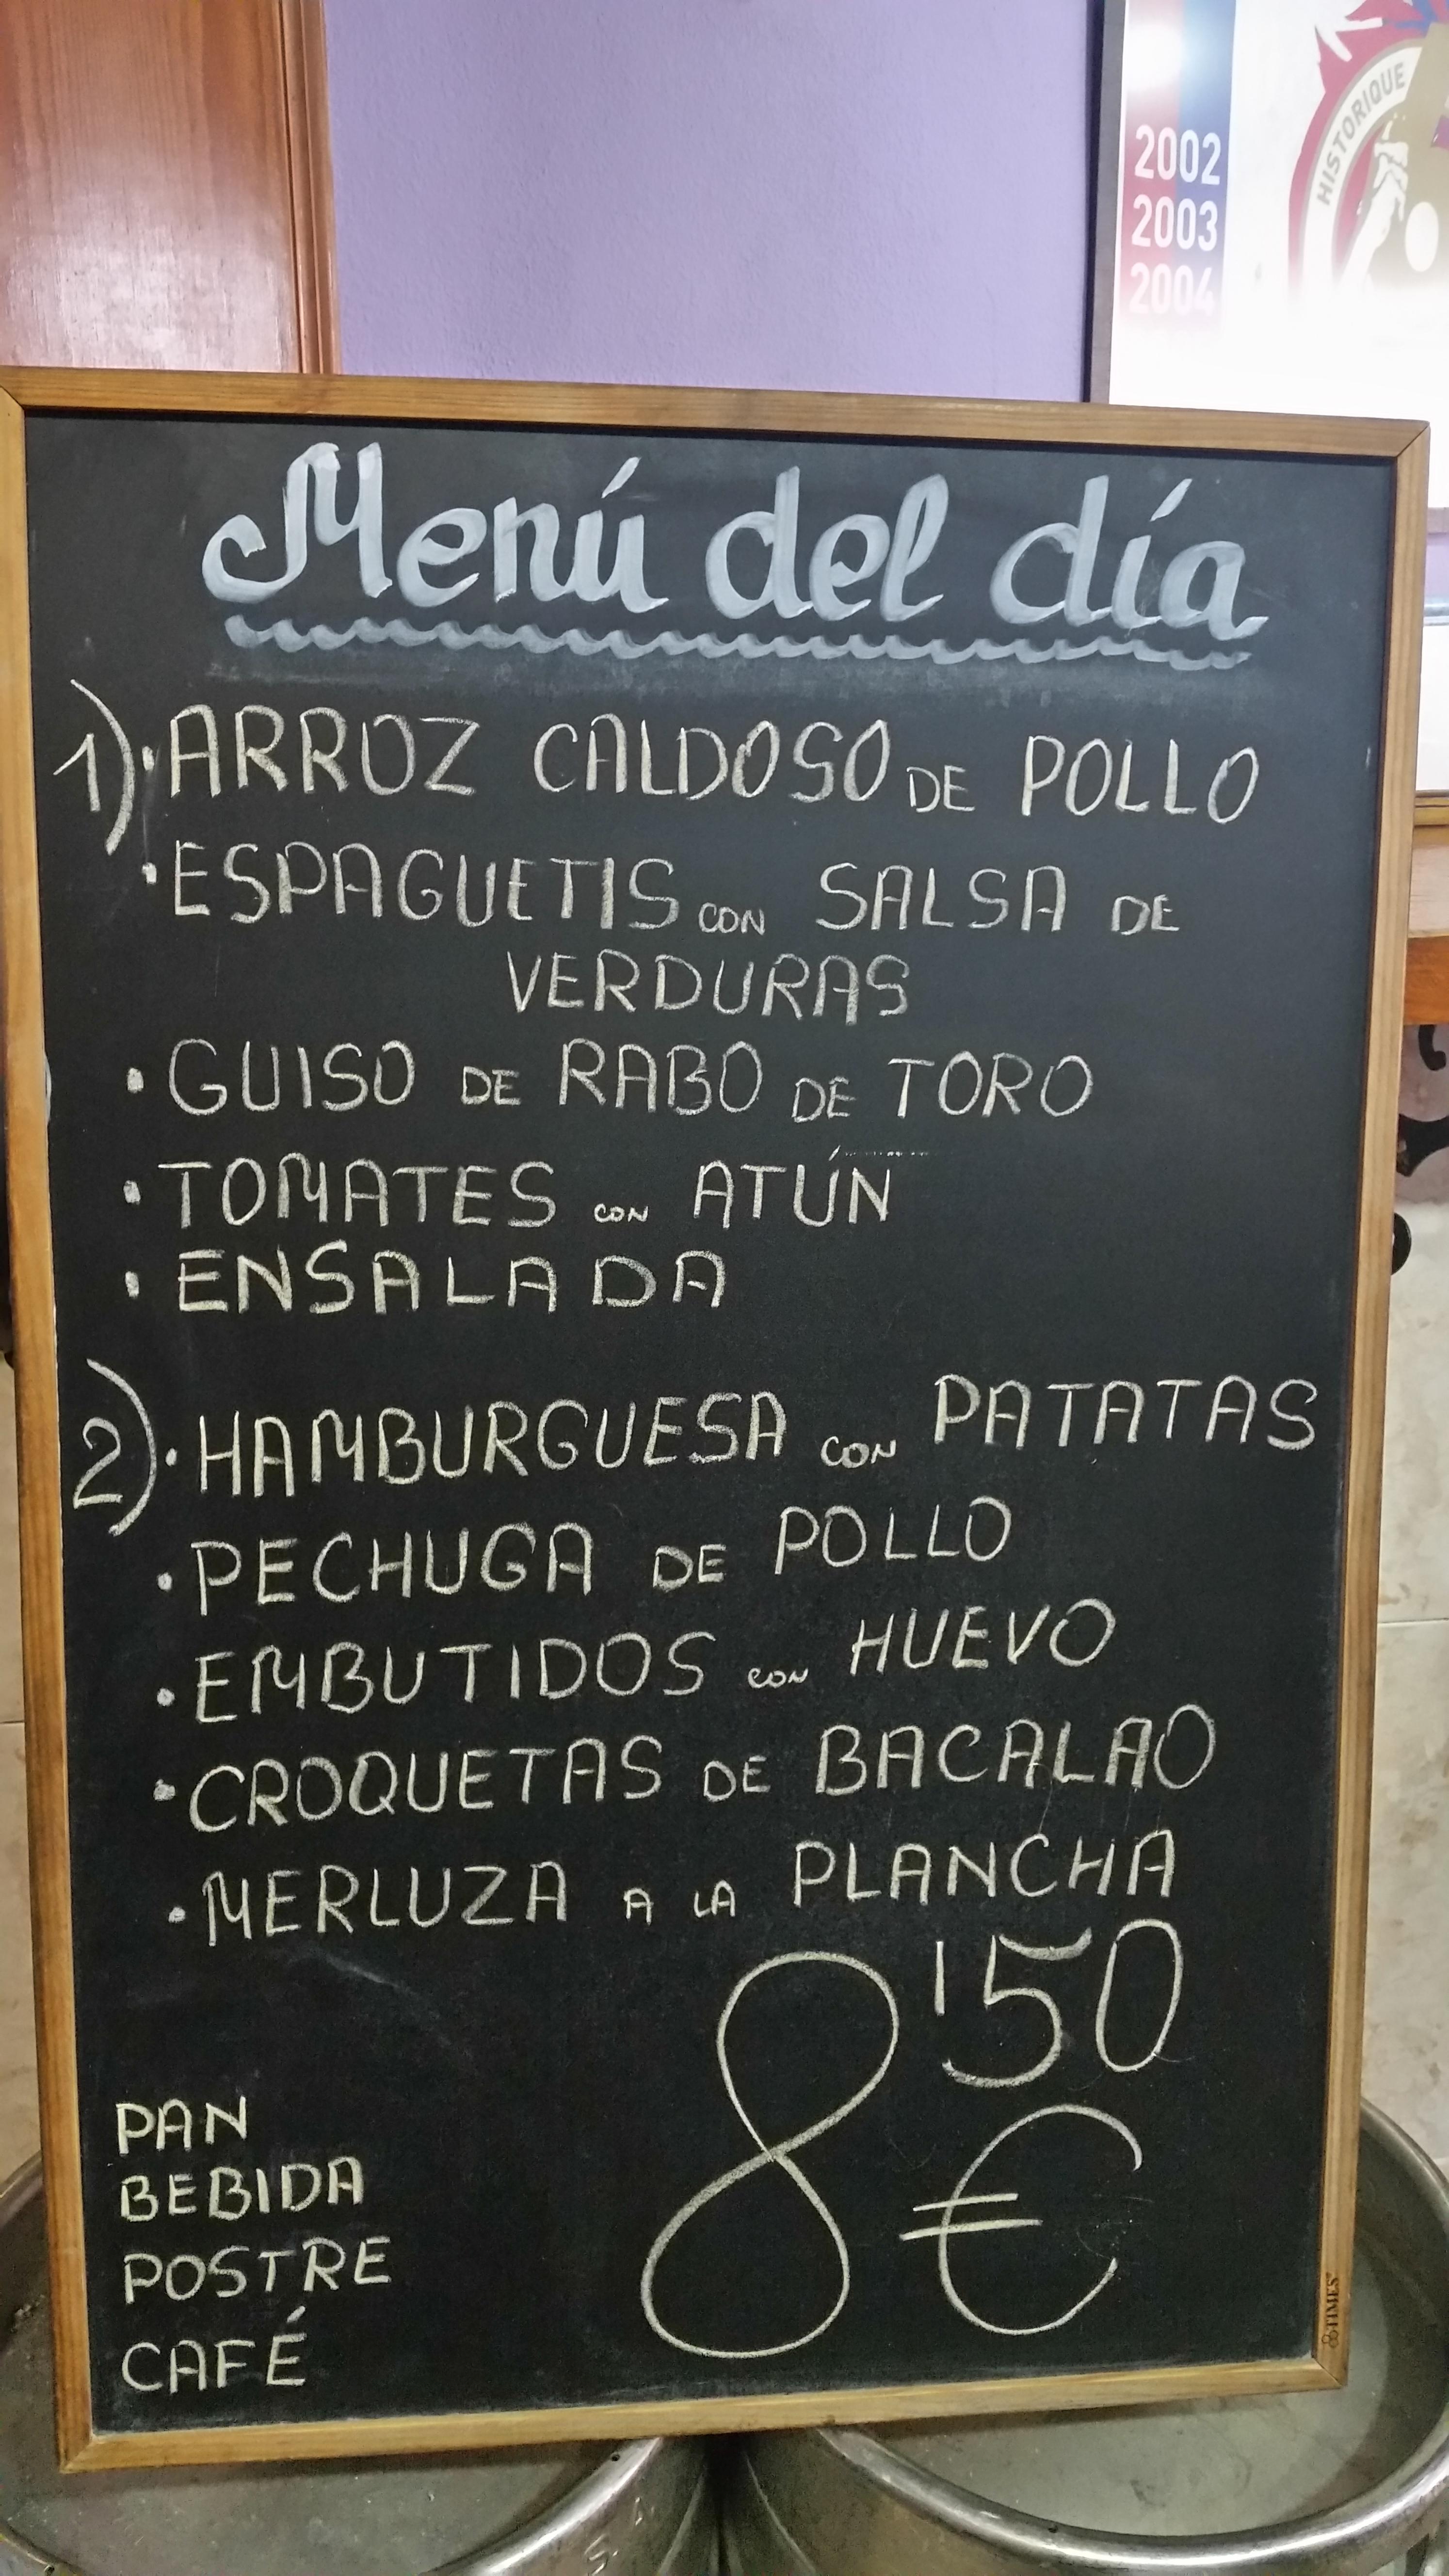 2002
2003
2004
HISTORIQUE
Menú del día
1) · ARROZ CALDOSO DE POLLO
· ESPAGUETIS CON SALSA DE
VERDURAS
· GUISO DE RABO DE TORO
· TOMATES CON ATÚN
· ENSALADA
2) · HAMBURGUESA CON PATATAS
· PECHUGA DE POLLO
· EMBUTIDOS CON HUEVO
· CROQUETAS DE BACALAO
· MERLUZA A LA PLANCHA
8'50 €
PAN
BEBIDA
POSTRE
CAFÉ
TIMES